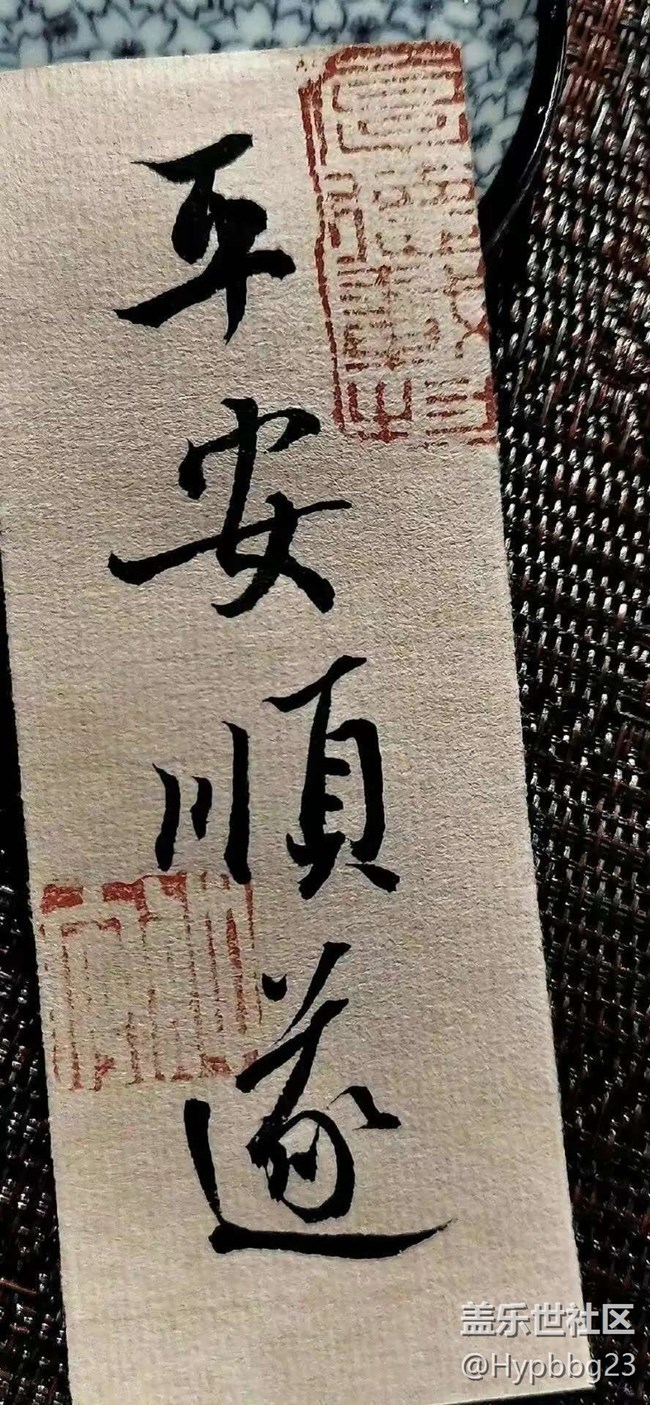 平安順遂
盖乐世社区
@Hypbbg23